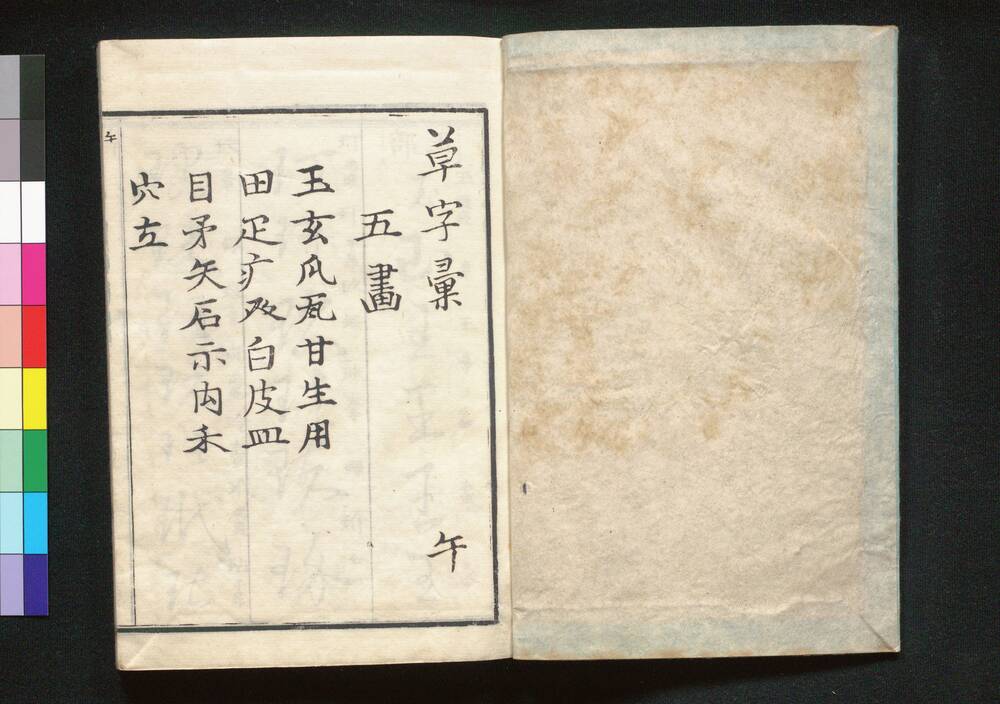 草字彙 午
五畫
玉玄瓜瓦甘生用
田疋疒癶白皮皿
目矛矢石示禸禾
穴立
午